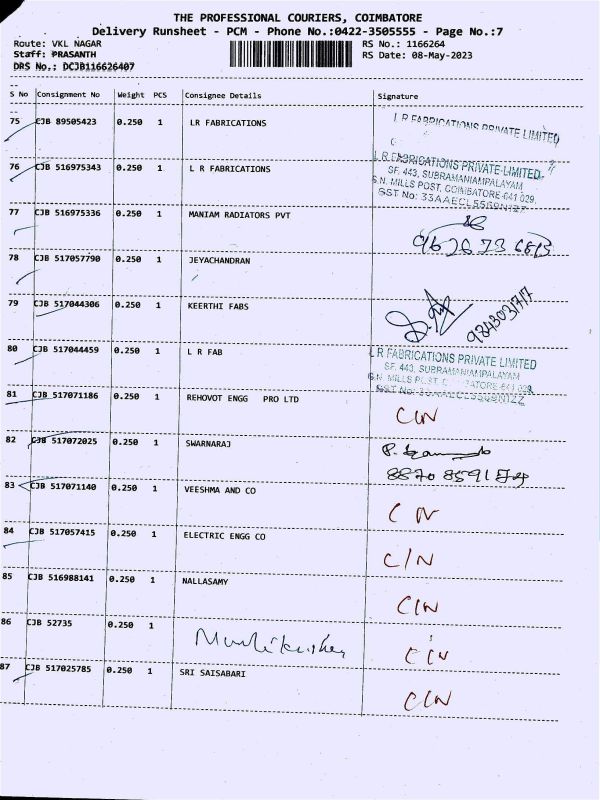 THE PROFESSIONAL COURIERS, COIMBATORE
Delivery Runsheet - PCM - Phone No.:0422-3505555 - Page No.:7
Route: VKL NAGAR RS No.: 1166264
Staff: PRASANTH RS Date: 08-May-2023
DRS No.: DCJB116626407
S No Consignment No Weight PCS Consignee Details Signature
75 CJB 89505423 0.250 1 LR FABRICATIONS
L R FABRICATIONS PRIVATE LIMITED
76 CJB 516975343 0.250 1 L R FABRICATIONS
L R FABRICATIONS PRIVATE LIMITED
SF. 443, SUBRAMANIAMPALAYAM
S.N. MILLS POST, COIMBATORE-641 029.
GST No: 33AAECL5569N1ZZ
77 CJB 516975336 0.250 1 MANIAM RADIATORS PVT
78 CJB 517057790 0.250 1 JEYACHANDRAN
79 CJB 517044306 0.250 1 KEERTHI FABS
9843031717
80 CJB 517044459 0.250 1 L R FAB
L R FABRICATIONS PRIVATE LIMITED
SF. 443, SUBRAMANIAMPALAYAM
S.N. MILLS POST, COIMBATORE-641 029.
GST No: 33AAECL5569N1ZZ
81 CJB 517071186 0.250 1 REHOVOT ENGG PRO LTD C/N
82 CJB 517072025 0.250 1 SWARNARAJ
83 CJB 517071140 0.250 1 VEESHMA AND CO C N
84 CJB 517057415 0.250 1 ELECTRIC ENGG CO C/N
85 CJB 516988141 0.250 1 NALLASAMY C/N
86 CJB 52735 0.250 1 C/N
87 CJB 517025785 0.250 1 SRI SAISABARI C/N